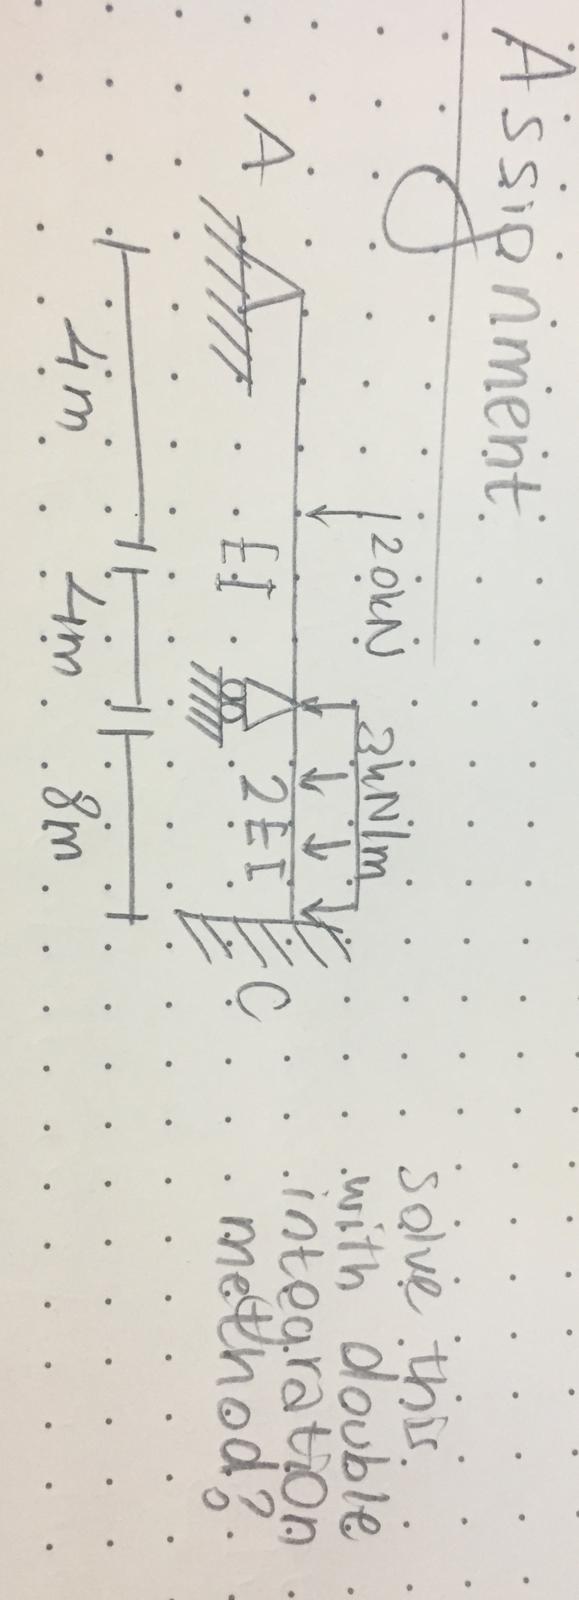 Assignment
20kN
3kN/m
A
EI
2EI
C
4m
4m
8m
solve this
with double
integration
method?